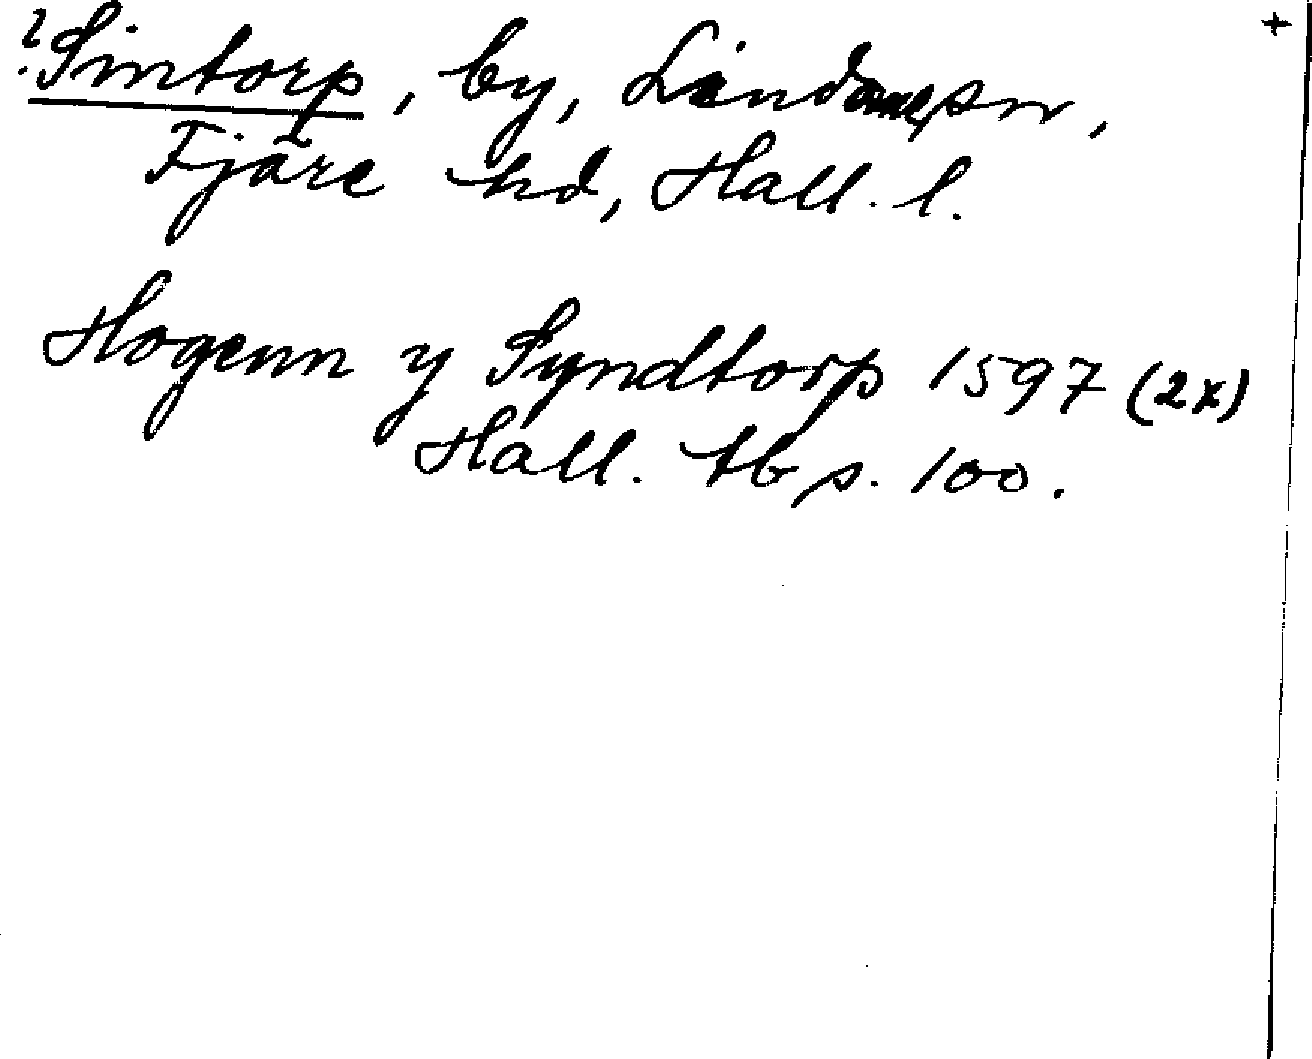 ? Sintorp, by, Lindome sn,
Fjäre hd, Hall. l.
+
Hogenn y Syndtorp 1597 (2x)
Hall. tb s. 100.